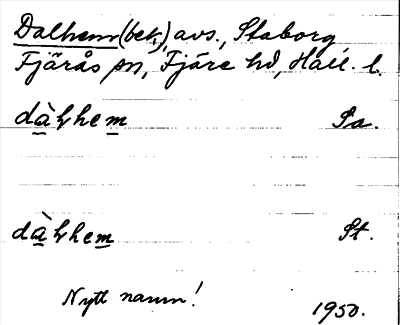 Dalhem (bek.), avs., Staborg
Fjärås sn, Fjäre hd, Hall. l.
dàⱡhem Sa.
dàⱡhem St.
Nytt namn!
1950.